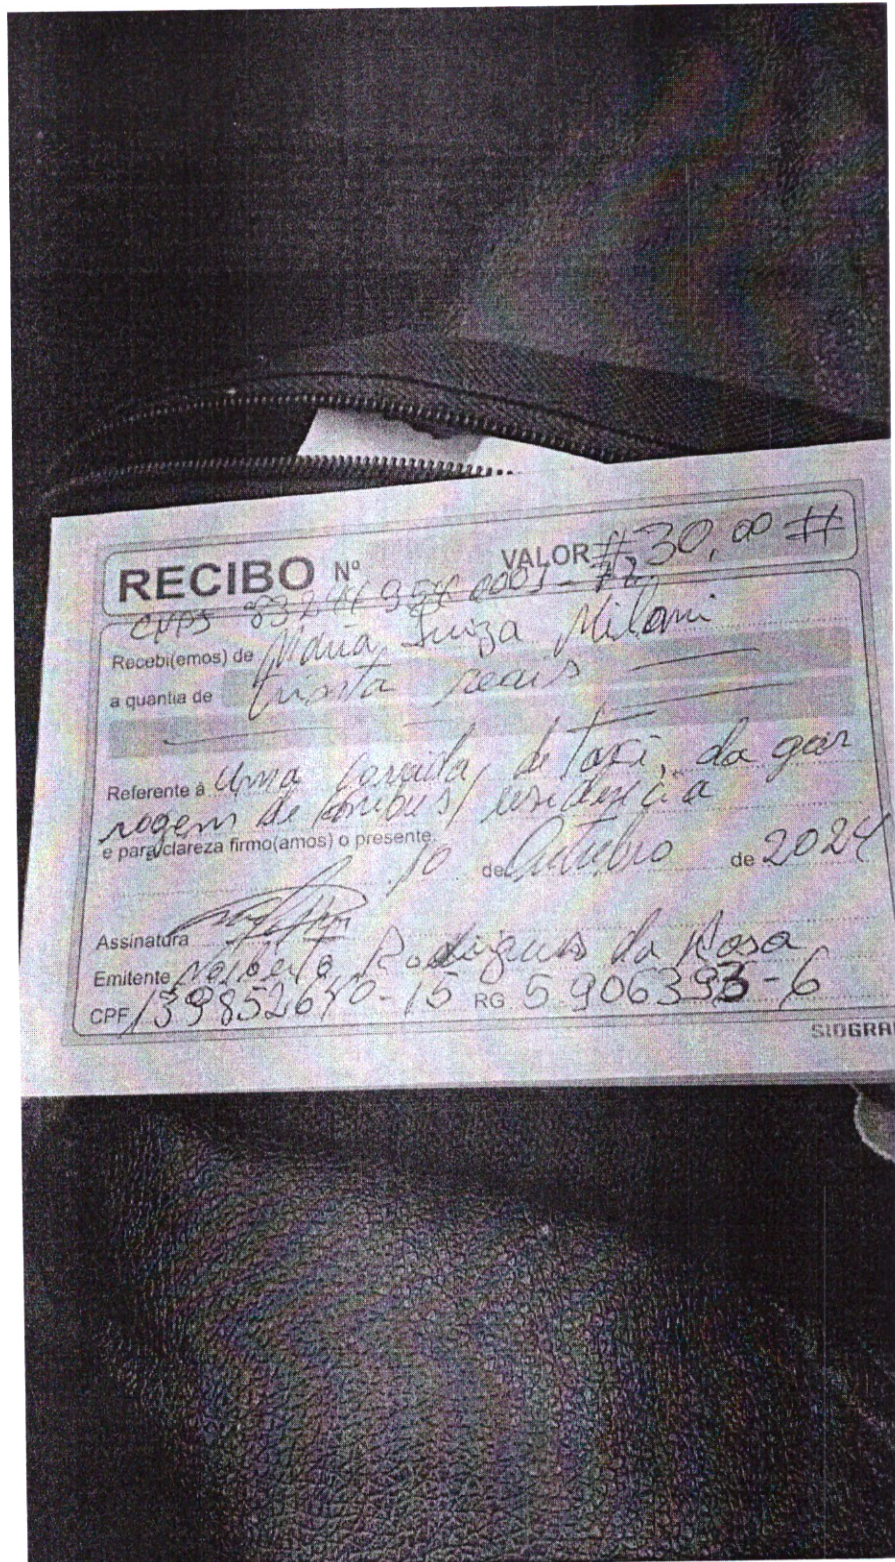 RECIBO Nº VALOR # 30,00 #
CNPJ 0001-72
Recebi(emos) de Maria Luiza Milani
a quantia de trinta reais
Referente à Uma corrida, de Taxi, da gar
ragem de ônibus/ residencia
e para clareza firmo(amos) o presente.
10 de Outubro de 2024
Assinatura
Emitente Norberto Rodrigues da Rosa
CPF 139852640-15 RG 5.906393-6
SIDGRA